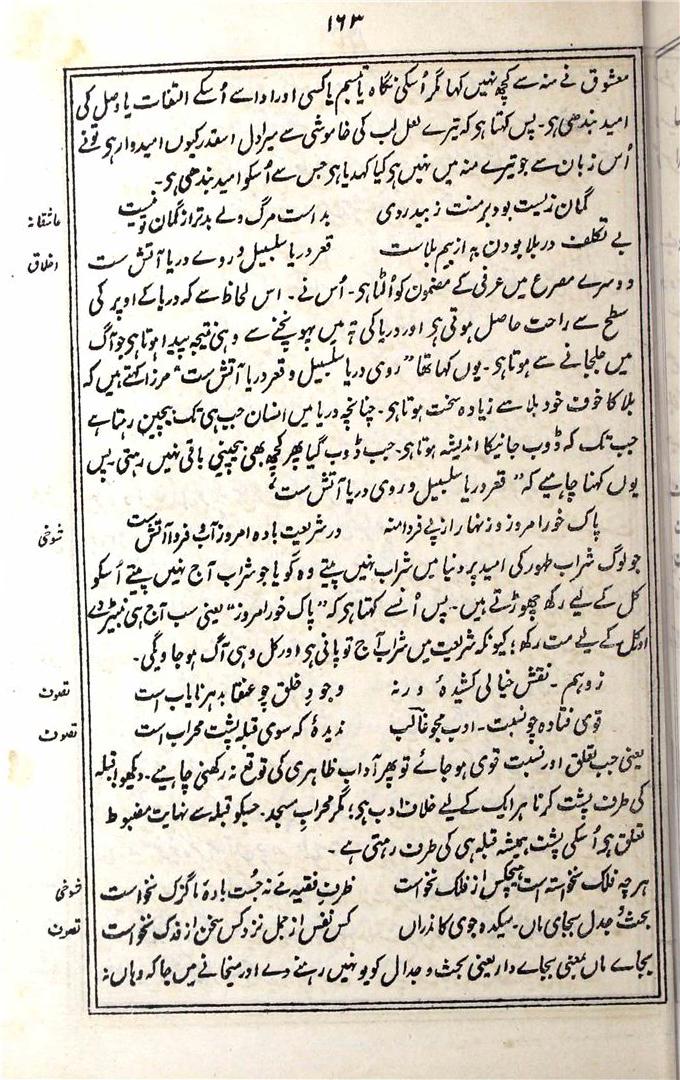 ۱۶۳
معشوق نے منہ سے کچھ نہیں کہا مگر اُسکی نگاہ یا تبسم یا کسی اور ادا سے اُسکے التفات یا وصل کی
امید بندھی ہو۔ پس کہتا ہو کہ تیرے لعل لب کی خاموشی سے میرا دل اسقدر کیوں امیدوار ہو تونے
اُس زبان سے جو تیرے منہ میں نہیں ہو کیا کہدیا ہو جس سے اُسکو امید بندھی ہو۔
گمان زیست بود بر منت ز بیدردی بد است مرگ ولے بدتر از گمان تو نیست
عاشقانہ
بے تکلف در بلا بودن بہ از بیم بلاست قعر دریا سلسبیل و روے دریا آتش ست
اخلاق
دوسرے مصرع میں عرفی کے مضمون کو اُلٹا ہو۔ اُس نے۔ اس لحاظ سے کہ دریا کے اوپر کی
سطح سے راحت حاصل ہوتی ہو اور دریا کی تہ میں پہونچنے سے وہی نتیجہ پیدا ہوتا ہو جو آگ
میں جلجانے سے ہوتا ہو۔ یوں کہا تھا ”روی دریا سلسبیل و قعر دریا آتش ست“ مرزا کہتے ہیں کہ
بلا کا خوف خود بلا سے زیادہ سخت ہوتا ہو۔ چنانچہ دریا میں انسان جب ہی تک بیچین رہتا ہے
جب تک کہ ڈوب جانیکا اندیشہ ہوتا ہو۔ جب ڈوب گیا پھر کچھ بھی بیچینی باقی نہیں رہتی۔ پس
یوں کہنا چاہیے کہ ”قعر دریا سلسبیل و روی دریا آتش ست“
پاک خور امروز و زنہار از پے فردا منہ در شریعت بادہ امروز آب و فردا آتش ست
شوخی
جو لوگ شراب طہور کی امید پر دنیا میں شراب نہیں پیتے وہ گویا جو شراب آج نہیں پیتے اُسکو
کل کے لیے رکھ چھوڑتے ہیں۔ پس اُنسے کہتا ہو کہ ”پاک خور امروز“ یعنی سب آج ہی نبیڑ دے
اور کل کے لیے مت رکھ؛ کیونکہ شریعت میں شراب آج تو پانی ہو اور کل وہی آگ ہو جاویگی۔
ز وہم۔ نقش خیالی کشیدۂ ورنہ وجودِ خلق چو عنقا بدہر نایاب است
تصوف
قوی فتادہ چو نسبت۔ ادب مجو غالب ندیدۂ کہ سوی قبلہ پشت محراب است
تصوف
یعنی جب تعلق اور نسبت قوی ہو جائے تو پھر آداب ظاہری کی توقع نہ رکھنی چاہیے۔ دیکھو قبلہ
کی طرف پشت کرنا ہر ایک کے لیے خلاف ادب ہو؛ مگر محرابِ مسجد۔ جسکو قبلہ سے نہایت مضبوط
تعلق ہو اُسکی پشت ہمیشہ قبلہ ہی کی طرف رہتی ہے۔
ہر چہ فلک نخواستہ است ہیچکس از فلک نخواست ظرفِ فقیہ مے نہ جُست بادۂ ما گزک نخواست
شوخی
بحث و جدل بجای ماں۔ میکدہ جوی کاندراں کس نفس از جمل نزد کس سخن از فدک نخواست
تصوف
بجاے ماں بمعنی بجاے دار یعنی بحث و جدال کو یو نہیں رہنے دے اور میخانے میں جا کہ وہاں نہ